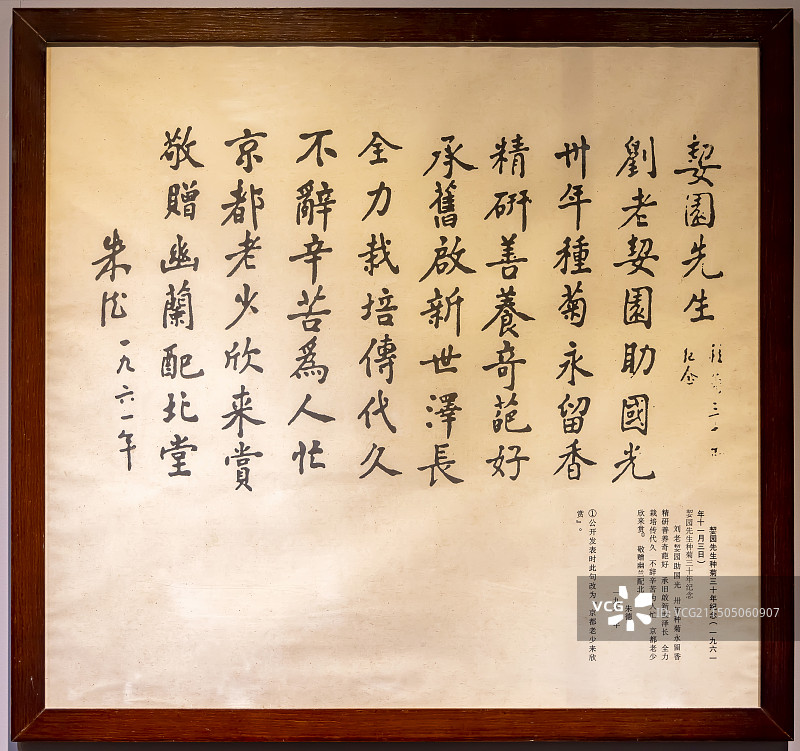 挈園先生
種菊三十年
紀念
劉老挈園助國光
卅年種菊永留香
精研善養奇葩好
承舊啟新世澤長
全力栽培傳代久
不辭辛苦為人忙
京都老少欣来賞
敬贈幽蘭配北堂
朱德
一九六一年
挈园先生种菊三十年纪念(一九六一
年十一月三日)
挈园先生种菊三十年纪念
刘老挈园助国光 卅年种菊永留香
精研善养奇葩好 承旧啟新世泽长 全力
栽培传代久 不辞辛苦为人忙 京都老少
欣来赏。 敬赠幽兰配北
朱德
一九 年
①公开发表时此句改为“京都老少来欣
赏”。
VCG
VCG211505060907